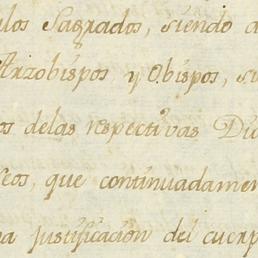 los Sagrados, siendo a
Arzobispos y Obispos, su
os delas respectivas Dio
eos, que continuadamen
a justificacion del cuerp